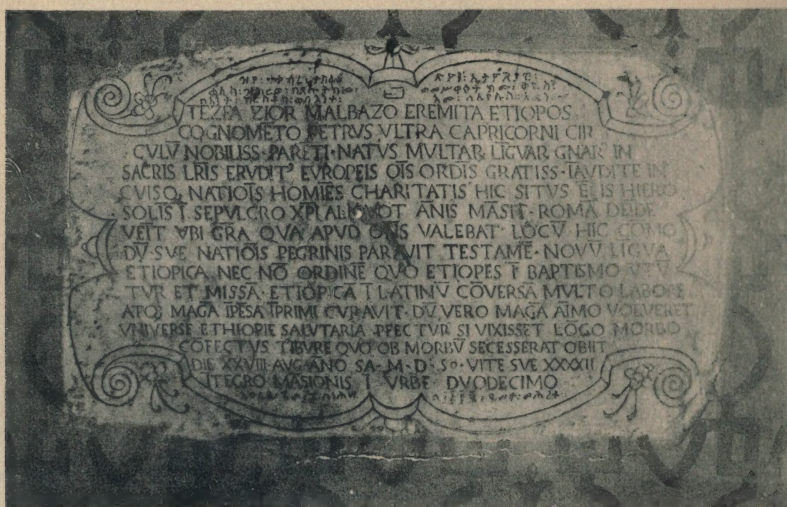 TEZFA ZIOR MALBAZO EREMITA ETIOPOS
COGNOMETO PETRVS VLTRA CAPRICORNI CIR
CVLV̄ NOBILISS· PARĒTI· NATVS MVLTAR LIGVAR GNAR̄ IN
SACRIS LR̄IS ERVDIT⁹ EVROPEIS OĪS ORDĪS GRATISS· IAVDITE IN
CVISQ NATIOĪS HOMIES CHARITATIS HIC SITVS Ē IS HIERO
SOLIS Ī SEPVLCRO XP̄I ALIQVOT ĀNIS MĀSIT· ROMĀ DEĪDE
VEĪT VBI GR̄A QVA APVD ŌNS VALEBAT· LOCV̄ HIC COMO
DV̄ SVE NATIOĪS PEGRINIS PARAVIT TESTAMĒ· NOVV̄ LIGVA
ETIOPICA NEC NŌ ORDINĒ QVO ETIOPES Ī BAPTISMO VTV̄
TVR ET MISSĀ· ETIOPICĀ Ī LATINV̄ CŌVERSĀ MVLTO LABORE
ATQ MAGA IPESA IPRIMI CVRAVIT· DV̄ VERO MAGA AĪMO VOLVERET
VNIVERSE ETHIOPIE SALVTARIA PFECTVR⁹ SI VIXISSET LŌGO MORBO
CŌFECTVS TIBVRE QVO OB MORBV̄ SECESSERAT OBIIT
DIE XXVIII AVG ANO SA· M· D· 50· VITE SVE XXXXII
ĪTEGRO MĀSIONIS Ī VRBE DVODECIMO